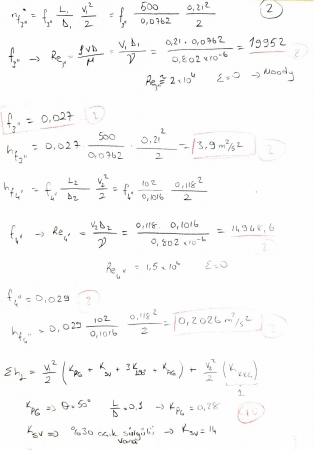 h_f3'' = f_3'' L₁/D₁ V₁²/2 = f_3'' 500/0,0762 0,21²/2 (2)
f_3'' → Re_3'' = ρVD/μ = V₁D₁/ν = 0,21 · 0,0762 / 0,802 × 10⁻⁶ = 19952 2
Re_3'' ≅ 2×10⁴ ε=0 → Moody
f_3'' = 0,027 2
h_f3'' = 0,027 500/0,0762 · 0,21²/2 = 3,9 m²/s² 2
h_f4'' = f_4'' L₂/D₂ V₂²/2 = f_4'' 102/0,1016 0,118²/2
f_4'' → Re_4'' = V₂D₂/ν = 0,118 · 0,1016 / 0,802 × 10⁻⁶ = 14948,6 2
Re_4'' = 1,5 × 10⁴ ε=0
f_4'' = 0,029 2
h_f4'' = 0,029 102/0,1016 0,118²/2 = 0,2026 m²/s² 2
Σh_L = V₁²/2 (K_PG + K_SV + 3K + K_AG) + V₂²/2 (K) 1
K_PG ⇒ θ=50° L/D=0,1 → K_PG = 0,28
K_SV ⇒ %30 açık sürgülü vana → K_SV = 14